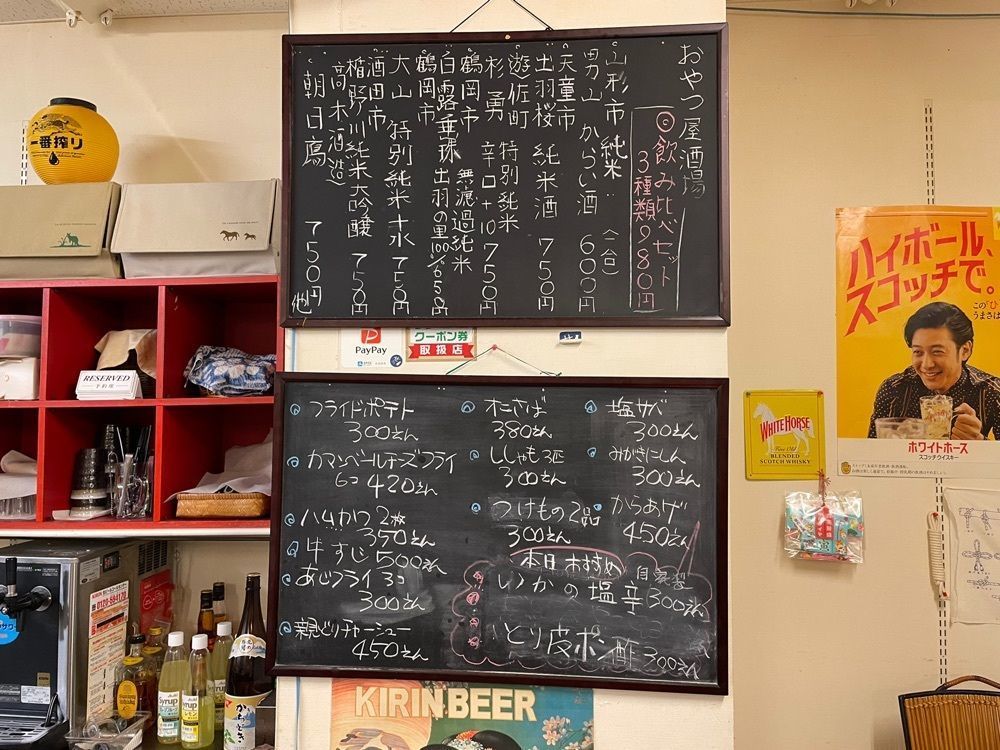 おやつ屋酒場
◎飲み比べセット
3種類980円
山形市 純米
男山 からい酒 (一合) 600円
天童市
出羽桜 純米酒 750円
遊佐町 特別純米
杉勇 辛口+10 750円
鶴岡市 無濾過純米
白露垂珠 出羽の里
鶴岡市
大山 特別純米十水 750円
酒田市
楯野川純米大吟醸 750円
高木酒造
朝日鷹 750円
他
一番搾り
RESERVED
予約席
PayPay
クーポン券
取扱店
フライドポテト
300えん
カマンベールチーズフライ
6コ 420えん
ハムかつ 2枚
350えん
牛すじ 500えん
あじフライ 3コ
300えん
親どりチャーシュー
450えん
オニさば
380えん
ししゃも 3匹
300えん
つけもの2品
300えん
塩サバ
300えん
みがきにしん
300えん
からあげ
450えん
本日おすすめ
自家製
いかの塩辛 300えん
とり皮ポン酢 300えん
KIRIN BEER
ハイボール、
スコッチで。
この「ひ
うまさは
ホワイトホース
スコッチウイスキー
WHITE HORSE
BLENDED
SCOTCH WHISKY
Asahi
Syrup
Syrup
KIRIN
0120-694120